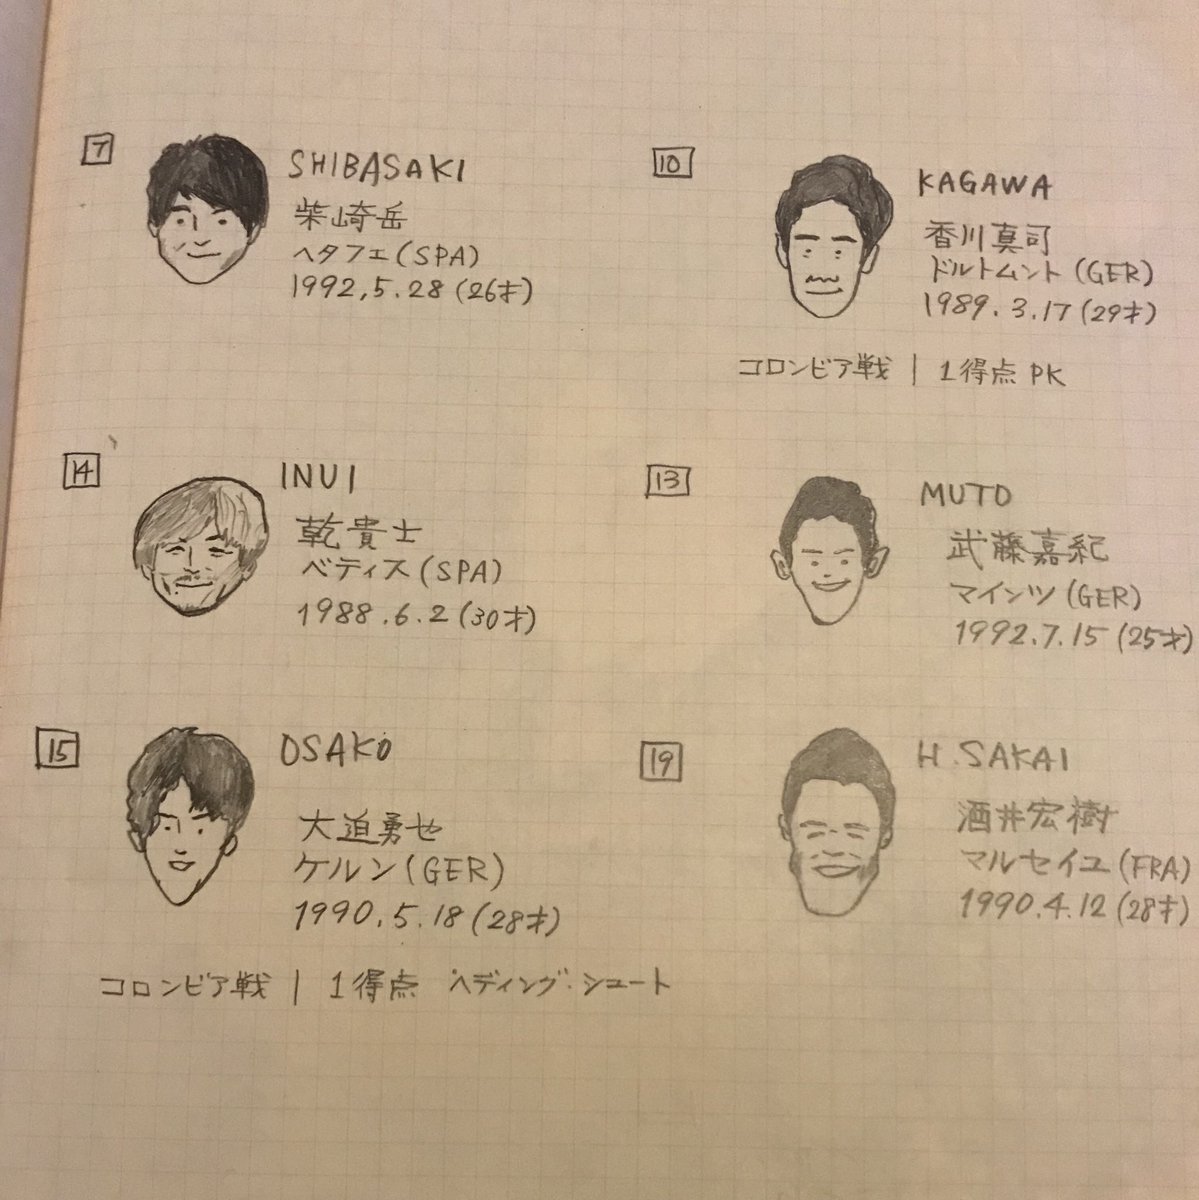 7
SHIBASAKI
柴崎岳
ヘタフェ(SPA)
1992,5.28(26才)
10
KAGAWA
香川真司
ドルトムント(GER)
1989.3.17(29才)
コロンビア戦 | 1得点 PK
14
INUI
乾貴士
ベティス(SPA)
1988.6.2(30才)
13
MUTO
武藤嘉紀
マインツ(GER)
1992.7.15(25才)
15
OSAKO
大迫勇也
ケルン(GER)
1990.5.18(28才)
コロンビア戦 | 1得点 ヘディング・シュート
19
H.SAKAI
酒井宏樹
マルセイユ(FRA)
1990.4.12(28才)